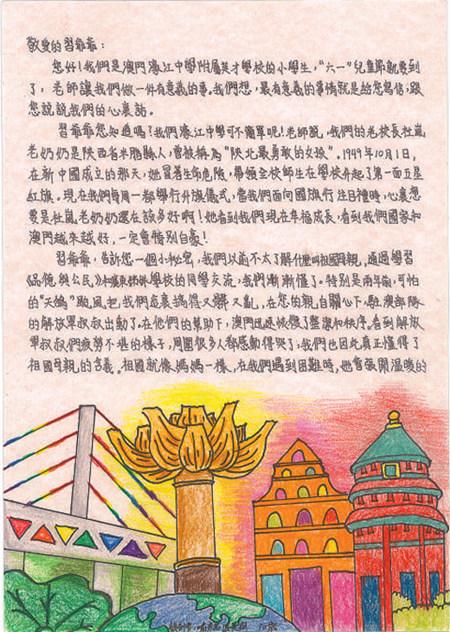 敬愛的習爺爺：
您好！我們是澳門濠江中學附屬英才學校的小學生，“六一”兒童節就要到
了，老師讓我們做一件有意義的事。我們想，最有意義的事情就是給您寫信，跟
您說說我們的心裏話。
習爺爺您知道嗎？我們濠江中學可不簡單呢！老師說，我們的老校長杜嵐
老奶奶是陝西省米脂縣人，曾被稱為“陝北最勇敢的女孩”。1949年10月1日，
在新中國成立的那天，她冒著生命危險，帶領全校師生在學校升起了第一面五星
紅旗。現在我們每周一都舉行升旗儀式，當我們面向國旗行注目禮時，心裏想
要是杜嵐老奶奶還在該多好啊！她看到我們現在幸福成長，看到我們國家和
澳門越來越好，一定會特別自豪！
習爺爺，告訴您一個小秘密，我們以前不太了解什麼叫祖國母親，通過學習
《品德與公民》學校的同學交流，我們漸漸懂了。特別是兩年前，可怕
的“天鴿”颱風把我們家裏搞得又髒又亂，在您的親自關心下，駐澳部隊
的解放軍叔叔出動了。在他們的幫助下，澳門迅速恢復了整潔和秩序。看到解放
軍叔叔們疲勞不堪的樣子，周圍很多人都感動得哭了，我們也因此真正懂得了
祖國母親的含義。祖國就像媽媽一樣，在我們遇到困難時，她會張開溫暖的